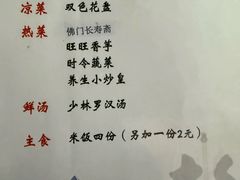 凉菜 双色花盘
热菜 佛门长寿斋
旺旺香芋
时令蔬菜
养生小炒皇
鲜汤 少林罗汉汤
主食 米饭四份（另加一份2元）